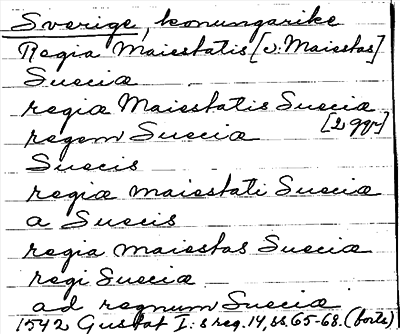 Sverige, konungarike
Regia Maiestatis [v. Maiestas]
Sueciæ
regiæ Maiestatis Sueciæ
regem Sueciæ [2 ggr]
Suecis
regiæ maiestati Sueciæ
a Suecis
regia maiestas Sueciæ
regi Sueciæ
ad regnum Sueciæ
1542 Gustaf I:s reg. 14, ss. 65-68. (forts)